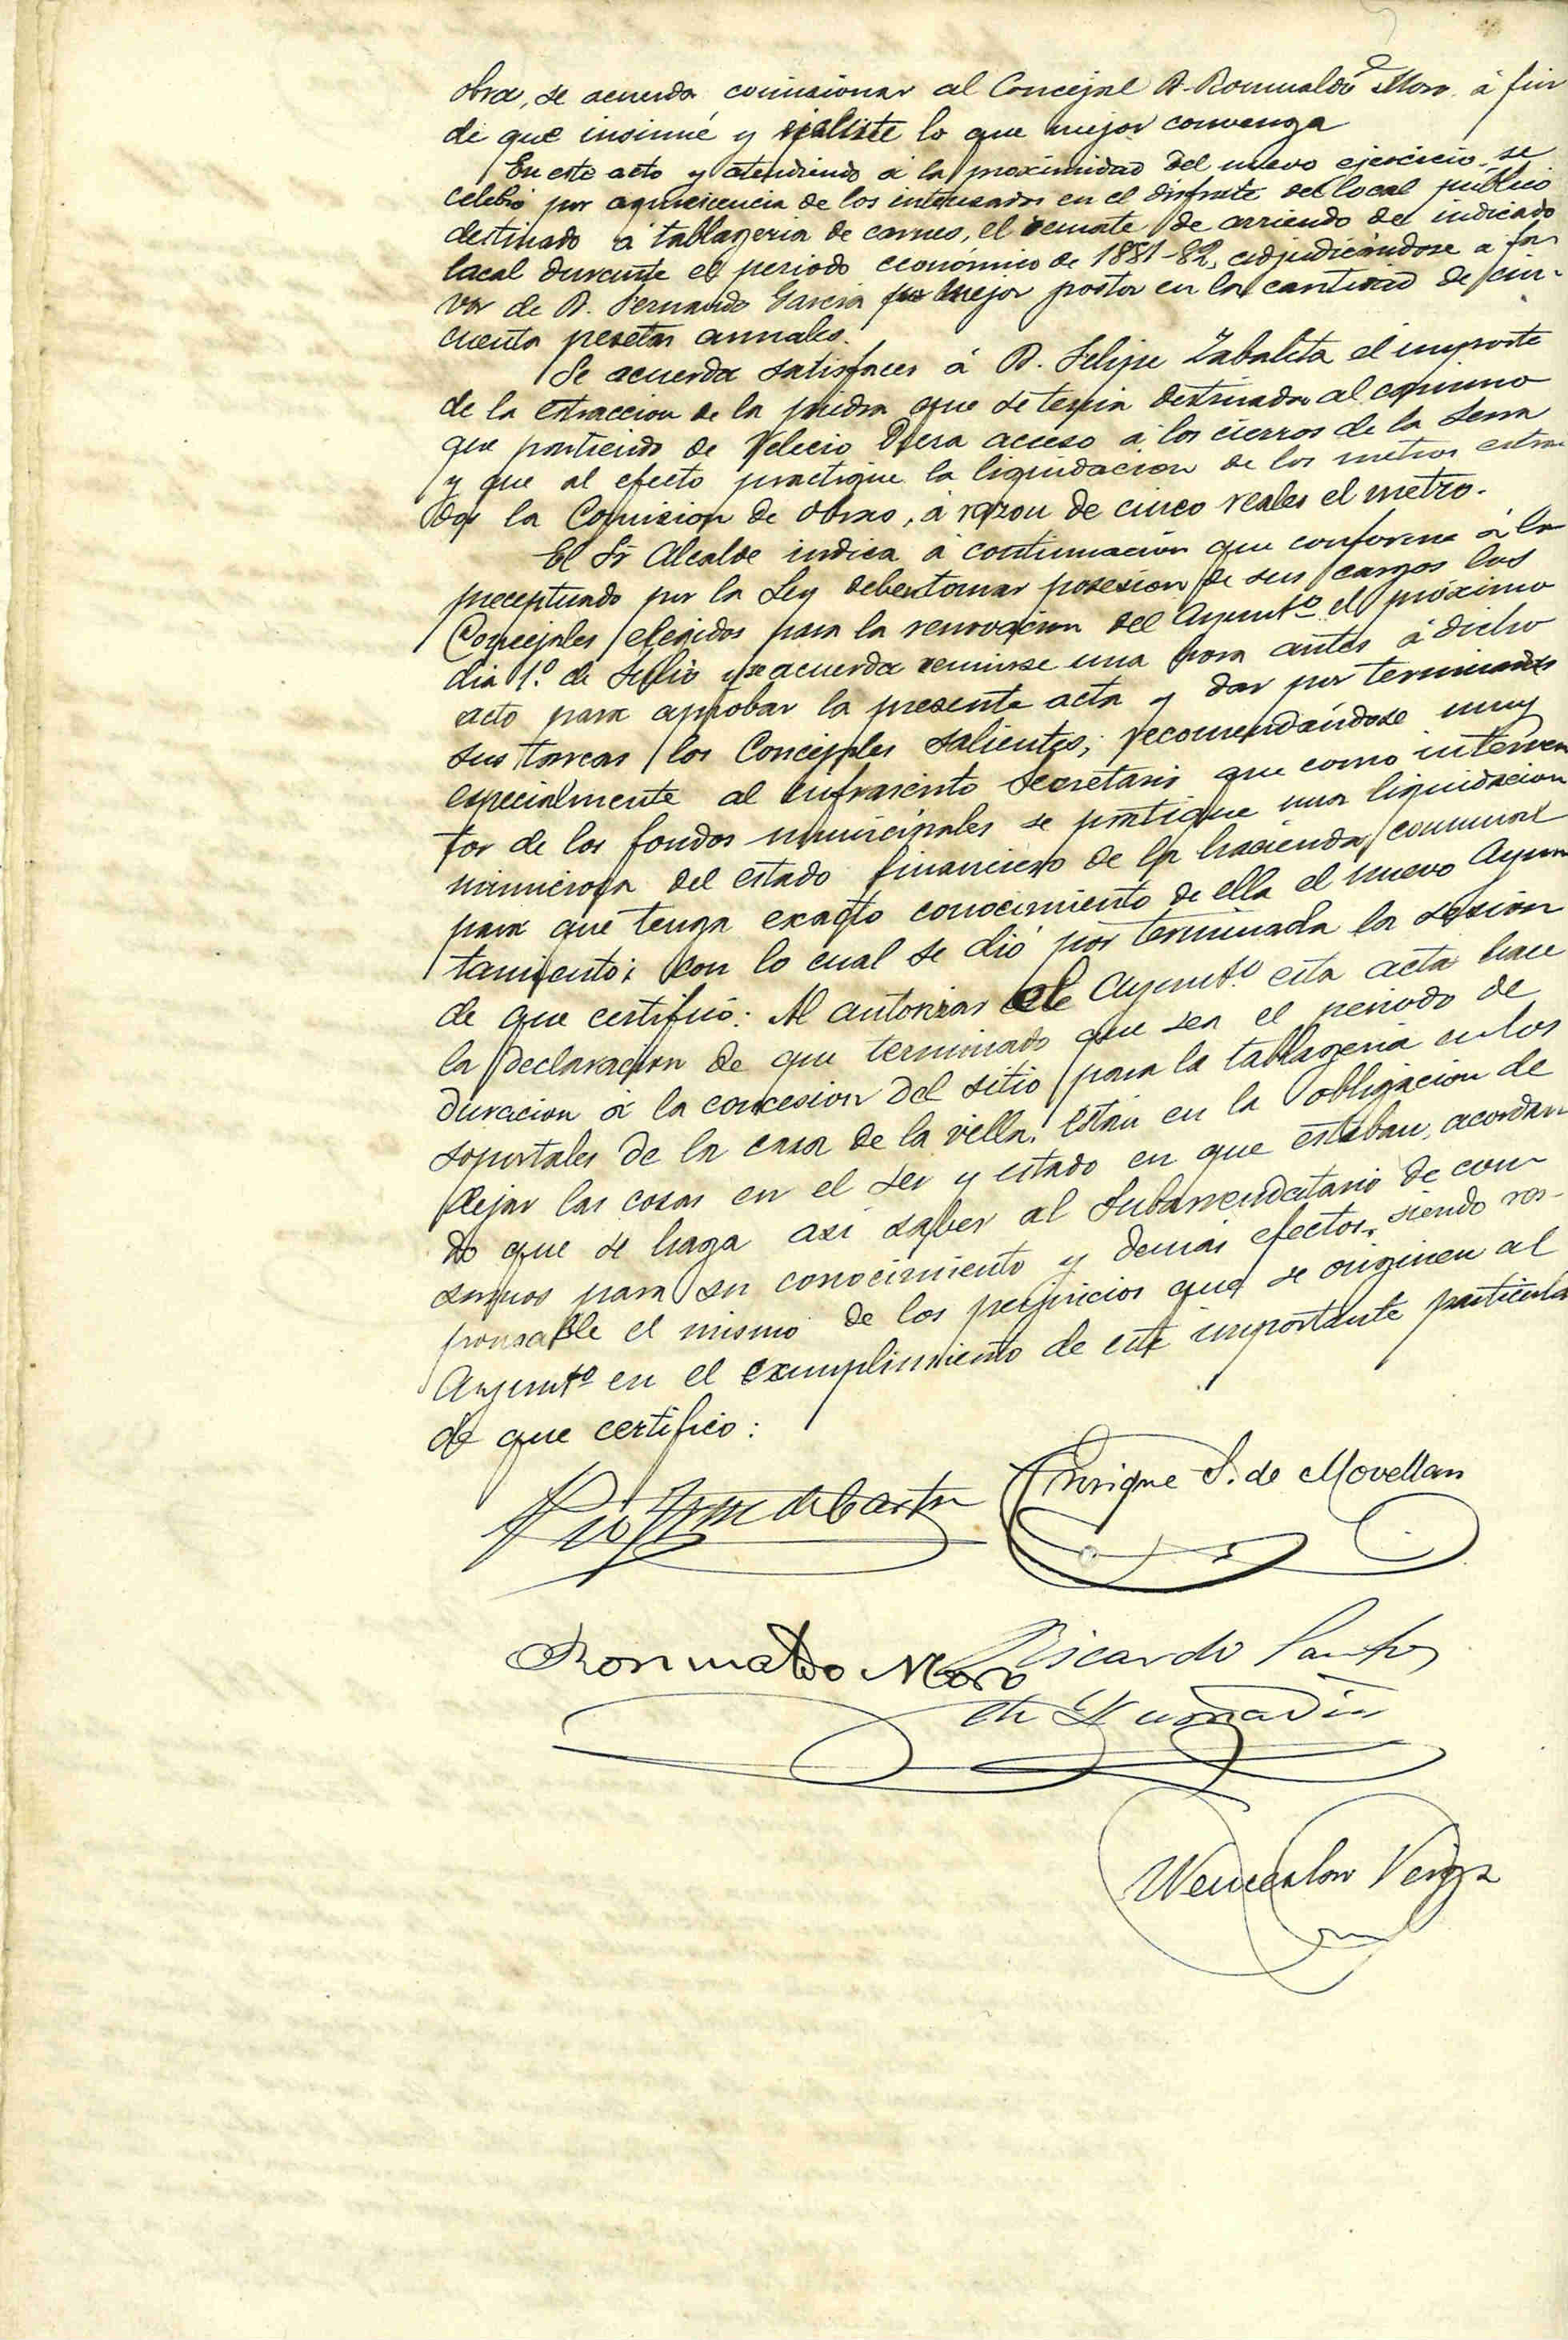 obra, se acuerda comisionar al Concejal D. Romualdo Moro á fin
de que insinué y realiste lo que mejor convenga
En este acto y atendiendo á la proximidad del nuevo ejercicio, se
celebró por aquiescencia de los interesados en el disfrute del local público
destinado á tablageria de carnes, el remate de arriendo del indicado
local durante el periodo económico de 1881-82, adjudicándose á fa-
vor de D. Fernando Garcia mejor postor en la cantidad de cin-
cuenta pesetas anuales.
Se acuerda satisfacer á D. Felipe Zabaleta el importe
de la estraccion de la piedra que se tenia destinada al camino
que partiendo de Velecio diera acceso á los cierros de la Sena
y que al efecto practique la liquidacion de los metros estrai
dos la Comision de obras, á razon de cinco reales el metro.
El Sr Alcalde indica á continuación que conforme á lo
preceptuado por la Ley deben tomar posesion de sus cargos los
Concejales elegidos para la renovacion del Ayuntº el próximo
dia 1º de Julio y se acuerda reunirse una hora antes á dicho
acto para aprobar la presente acta y dar por terminadas
sus tareas los Concejales salientes; recomendándose muy
especialmente al infrascrito Secretario que como interven
tor de los fondos municipales se practique una liquidacion
minuciosa del estado financiero de la hacienda comunal
para que tenga exacto conocimiento de ella el nuevo Ayun
tamiento; con lo cual se dió por terminada la sesion
de que certifico: Al autorizar el Ayuntº esta acta hace
la declaracion de que terminado que sea el periodo de
duracion á la concesion del sitio para la tablageria en los
soportales de la casa de la villa, están en la obligacion de
dejar las cosas en el ser y estado en que estaban, acordan
do que se haga asi saber al Subarrendatario de con-
sumos para su conocimiento y demás efectos, siendo res-
ponsable el mismo de los perjuicios que se originen al
Ayuntº en el cumplimiento de este importante particular
de que certifico:
Enrique S. de Movellan
Romualdo Moro
Ricardo Santos
Wenceslao Veiga